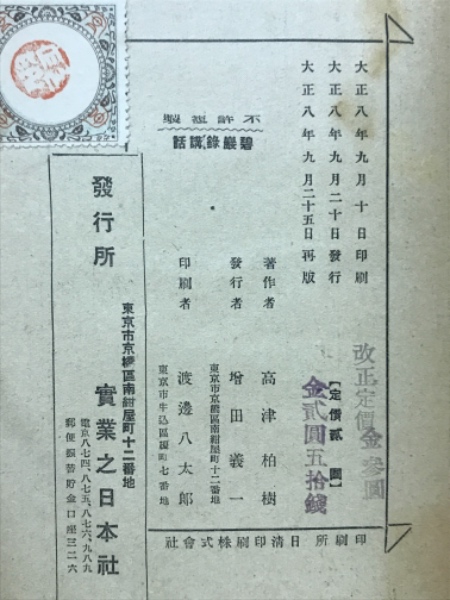 大正八年九月十日印刷
大正八年九月二十日發行
大正八年九月二十五日再版
改正定價金參圓
【定價貳圓】
金貳圓五拾錢
不許複製
碧巖錄講話
著作者 高津柏樹
發行者 增田義一
東京市京橋區南紺屋町十二番地
印刷者 渡邊八太郎
東京市牛込區榎町七番地
印刷所 日清印刷株式會社
發行所
東京市京橋區南紺屋町十二番地
實業之日本社
電京八七四、八七五、八七六、九八九
郵便振替貯金口座三二六